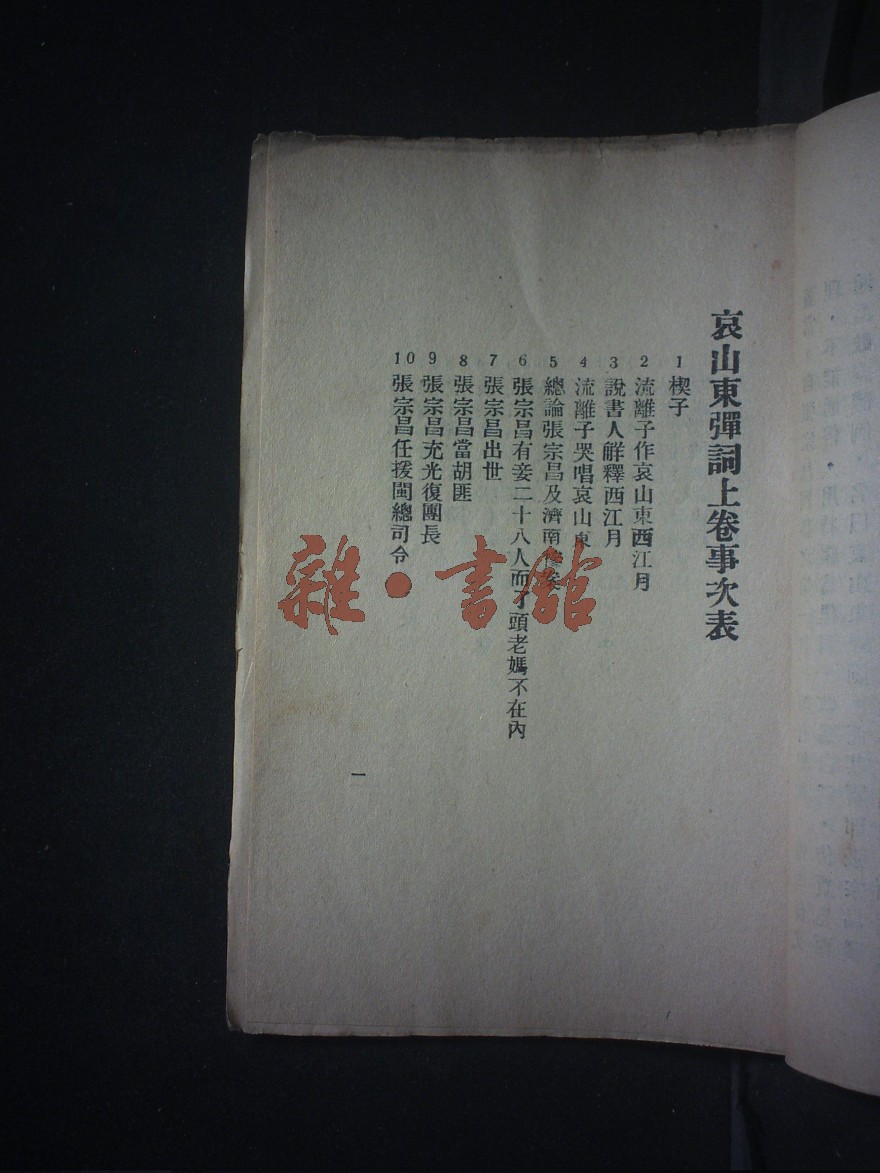 哀山東彈詞上卷事次表
1 楔子
2 流離子作哀山東西江月
3 說書人解釋西江月
4 流離子哭唱哀山東
5 總論張宗昌及濟南慘案
6 張宗昌有妾二十八人而丫頭老媽不在內
7 張宗昌出世
8 張宗昌當胡匪
9 張宗昌充光復團長
10 張宗昌任援閩總司令
一
雜·書館